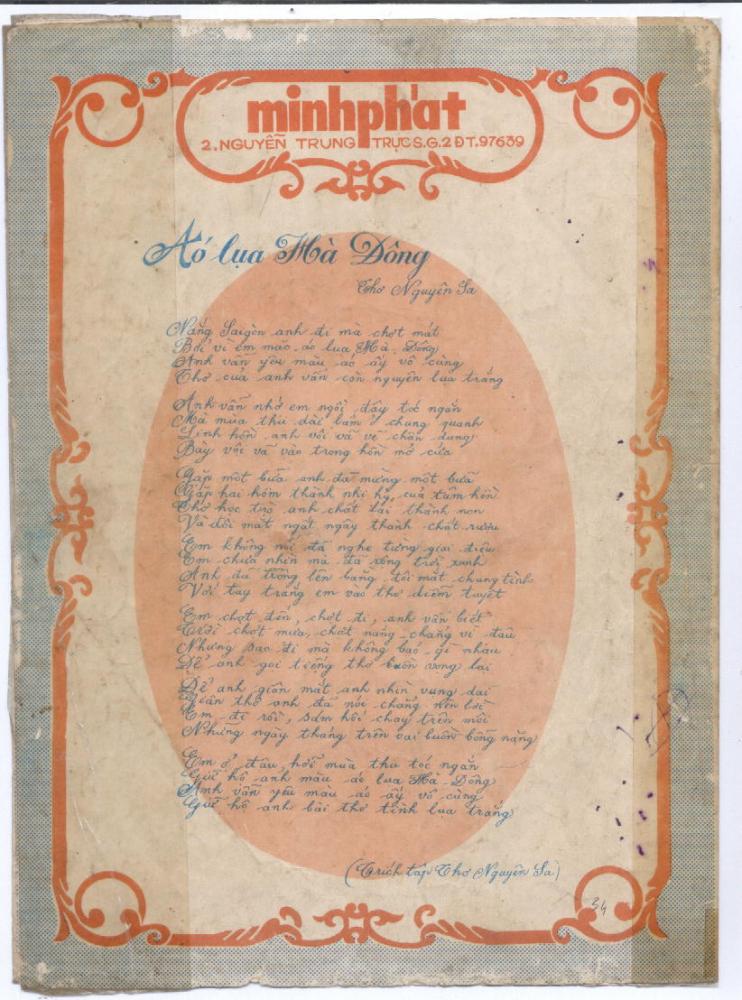 minhphát
2. NGUYỄN TRUNG TRỰC S.G.2 ĐT.97639
Áo lụa Hà Đông
Thơ Nguyên Sa
Nắng Saigòn anh đi mà chợt mát
Bởi vì em mặc áo lụa Hà Đông
Anh vẫn yêu màu áo ấy vô cùng
Thơ của anh vẫn còn nguyên lụa trắng
Anh vẫn nhớ em ngồi đây tóc ngắn
Mà mùa thu dài lắm ở chung quanh
Linh hồn anh vội vã vẽ chân dung
Bày vội vã vào trong hồn mở cửa
Gặp một bữa anh đã mừng một bữa
Gặp hai hôm thành nhị hỷ của tâm hồn
Thơ học trò anh chất lại thành non
Và đôi mắt ngất ngây thành chất rượu
Em không nói đã nghe từng giai điệu
Em chưa nhìn mà đã rộng trời xanh
Anh đã trông lên bằng đôi mắt chung tình
Với tay trắng em vào thơ diễm tuyệt
Em chợt đến, chợt đi, anh vẫn biết
Trời chợt mưa, chợt nắng chẳng vì đâu
Nhưng sao đi mà không bảo gì nhau
Để anh gọi tiếng thơ buồn vọng lại
Để anh giận mắt anh nhìn vụng dại
Giận thơ anh đã nói chẳng nên lời
Em đi rồi, sám hối chạy trên môi
Những ngày tháng trên vai buồn bỗng nặng
Em ở đâu, hỡi mùa thu tóc ngắn
Giữ hộ anh màu áo lụa Hà Đông
Anh vẫn yêu màu áo ấy vô cùng
Giữ hộ anh bài thơ tình lụa trắng
(Trích tập Thơ Nguyên Sa)
34